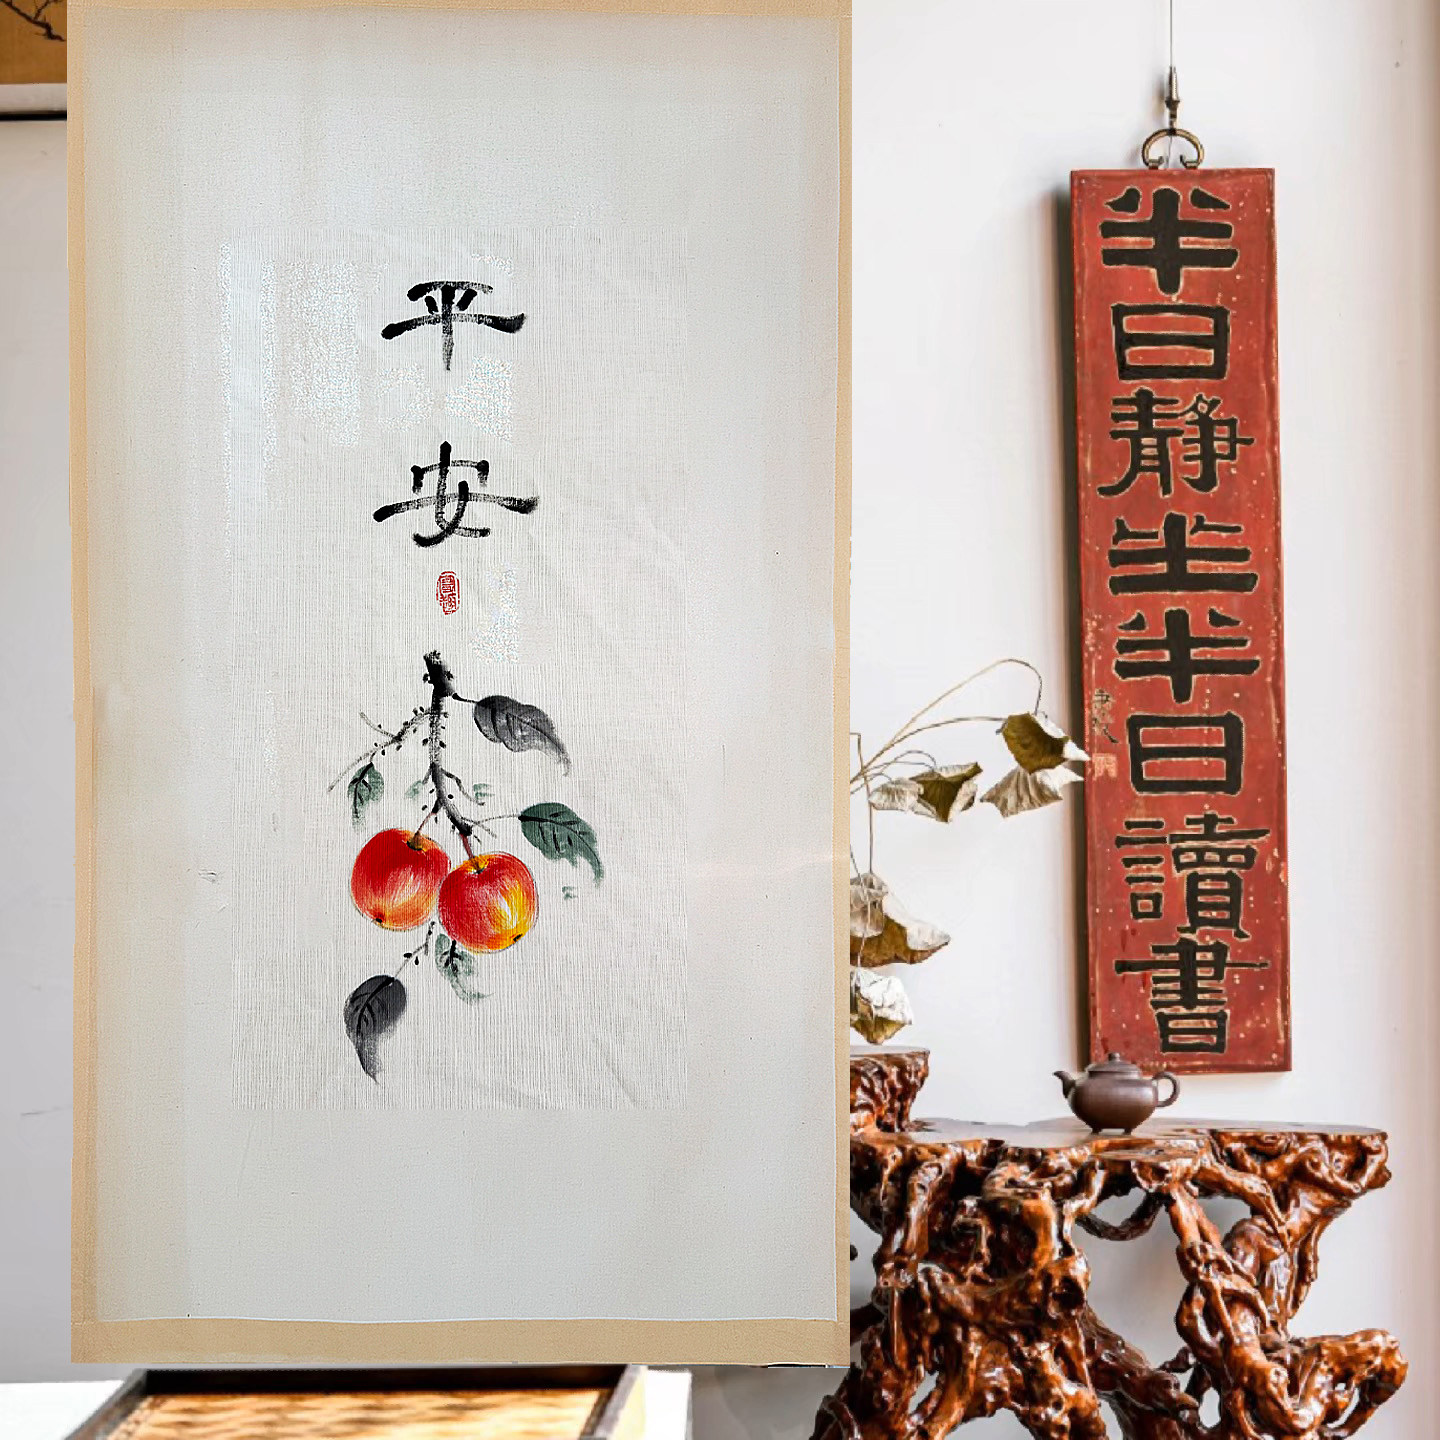 平安
半日静坐半日讀書